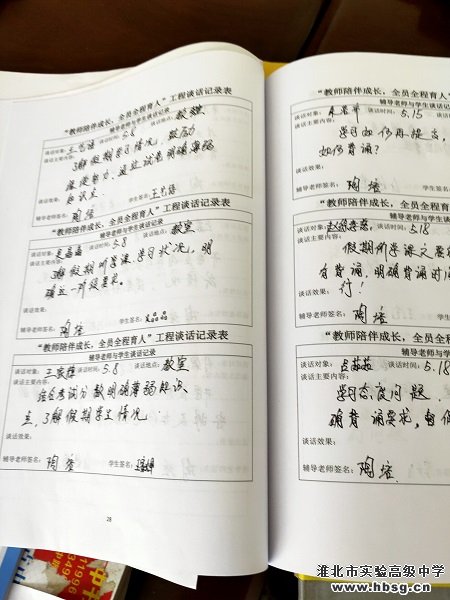 “教师陪伴成长，全员全程育人”工程谈话记录表
辅导老师与学生谈话记录
谈话对象： 谈话时间：5.8 谈话地点：教室
谈话主要内容：
了解假期学习情况，鼓励
继续努力，通过试卷明确薄弱
知识点。
谈话效果：
辅导老师签名：陶 学生签名：
“教师陪伴成长，全员全程育人”工程谈话记录表
辅导老师与学生谈话记录
谈话对象：晶晶 谈话时间：5.8 谈话地点：教室
谈话主要内容：
了解假期听课、学习状况，明
确近一阶段要求。
谈话效果：
辅导老师签名：陶 学生签名：晶晶
“教师陪伴成长，全员全程育人”工程谈话记录表
辅导老师与学生谈话记录
谈话对象：王 谈话时间：5.8 谈话地点：教室
谈话主要内容：
结合考试分数明确薄弱知识
点，了解假期学生情况。
谈话效果：
辅导老师签名：陶 学生签名：
28
“教师陪伴成长，全员
辅导老师与学
谈话对象： 谈话时间：5.15
谈话主要内容：
学习如何再提高，
如何背诵？
谈话效果：
辅导老师签名：陶
“教师陪伴成长，全员
辅导老师与学
谈话对象：赵 谈话时间：5.18
谈话主要内容：
假期所学课文要
背诵，明确背诵时
谈话效果：行！
辅导老师签名：陶
“教师陪伴成长，全
辅导老师与
谈话对象： 谈话时间：5.18
谈话主要内容：
学习态度问题
确背诵要求，
谈话效果：
辅导老师签名：陶
淮北市实验高级中学
www.hbsg.cn